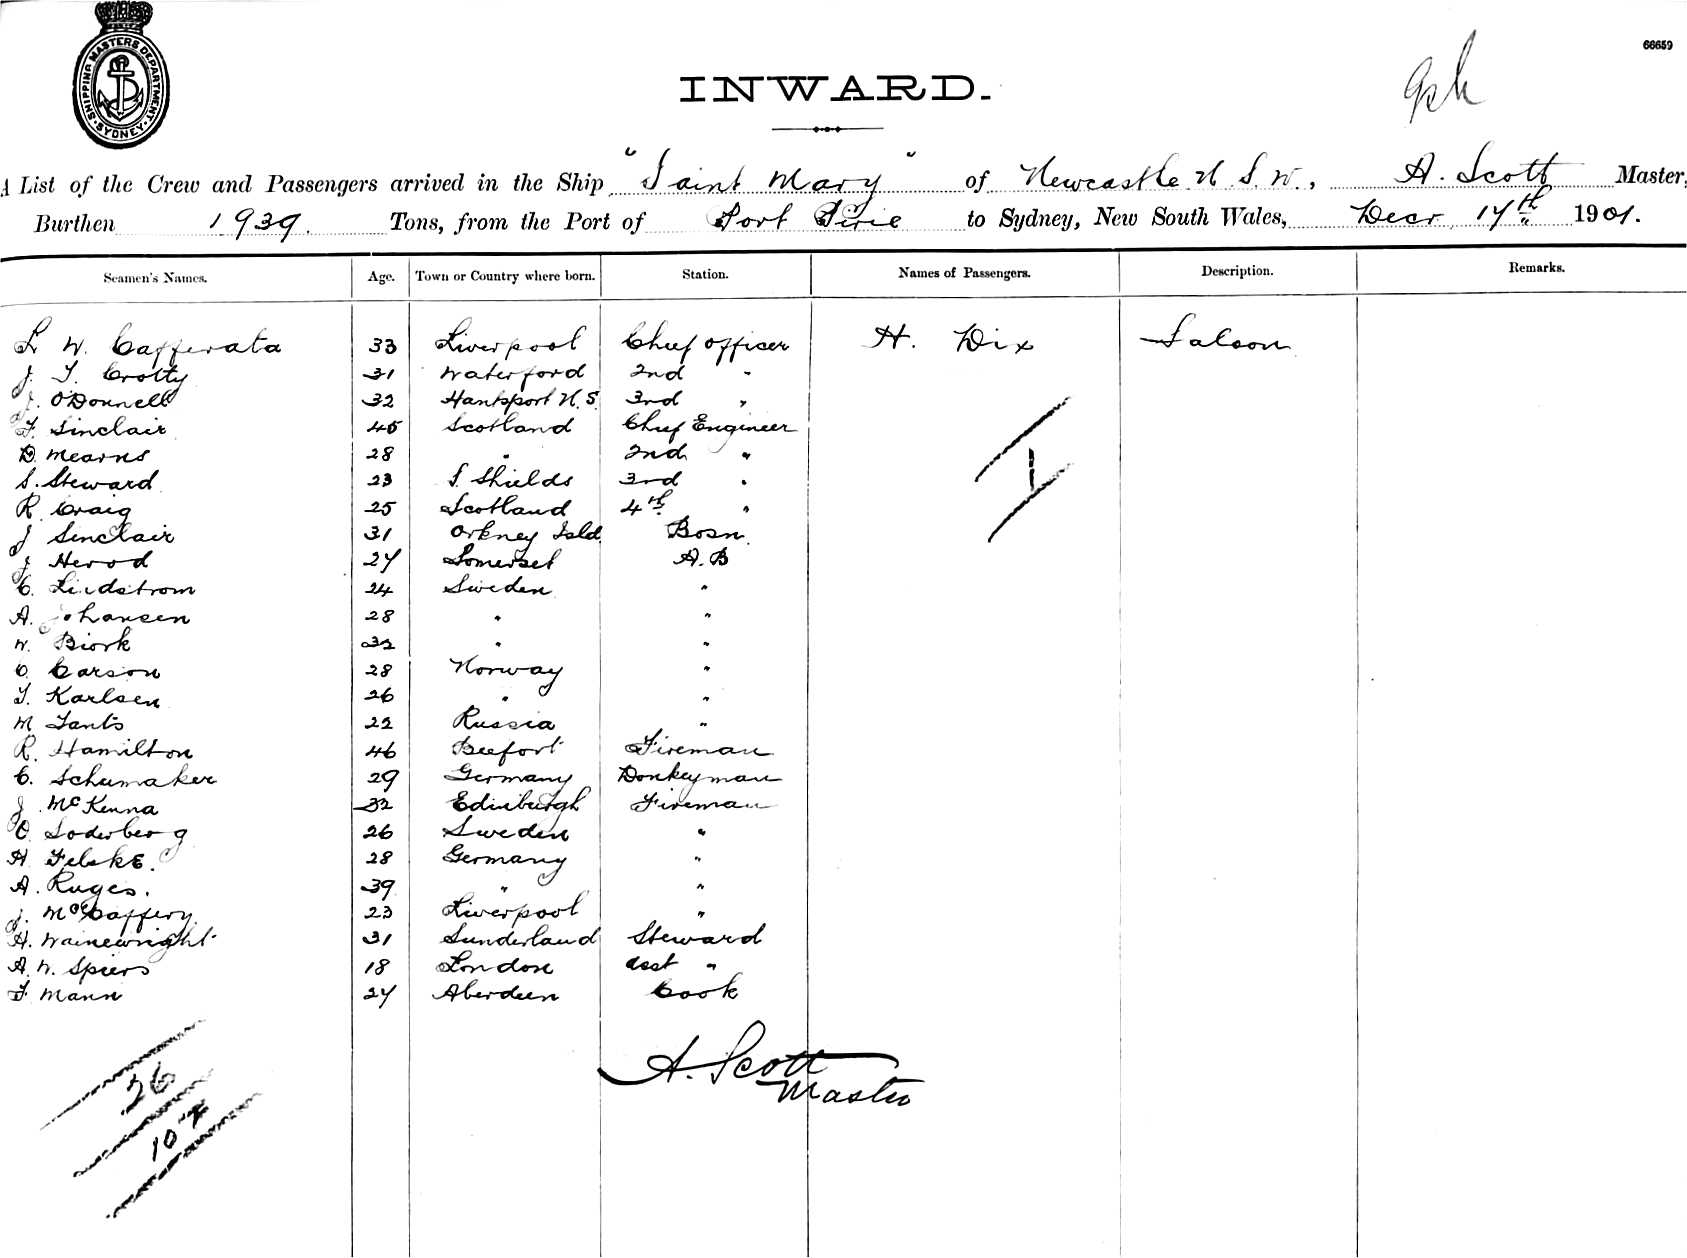 SHIPPING MASTERS DEPARTMENT · SYDNEY ·
66659
INWARD.
A List of the Crew and Passengers arrived in the Ship "Saint Mary" of Newcastle N.S.W., A. Scott Master,
Burthen 1939 Tons, from the Port of Port Pirie to Sydney, New South Wales, Decr 17th 1901.
Seamen's Names. Age. Town or Country where born. Station. Names of Passengers. Description. Remarks.
L W. Cafferata 33 Liverpool Chief Officer H. Dix Saloon
J. T. Crotty 31 Waterford 2nd "
J. O'Donnell 32 Hantsport N.S. 3rd "
F. Sinclair 45 Scotland Chief Engineer
D. Mearns 28 " 2nd "
S. Steward 23 S. Shields 3rd "
R. Craig 25 Scotland 4th "
J Sinclair 31 Orkney Isld Bosn
J Herod 27 Somerset A.B
C. Lindstrom 24 Sweden "
A. Johansen 28 " "
W. Biork 32 " "
O. Carson 28 Norway "
T. Karlsen 26 " "
M Tants 22 Russia "
R. Hamilton 46 Beefort Fireman
C. Schumaker 29 Germany Donkeyman
J. McKenna 32 Edinburgh Fireman
O. Soderberg 26 Sweden "
H Felske. 28 Germany "
A. Ruges. 39 " "
J. McCaffery 23 Liverpool "
H. Wainewright 31 Sunderland Steward
A. W. Spiers 18 London asst "
F Mann 27 Aberdeen Cook
1
A. Scott
Master
26
107